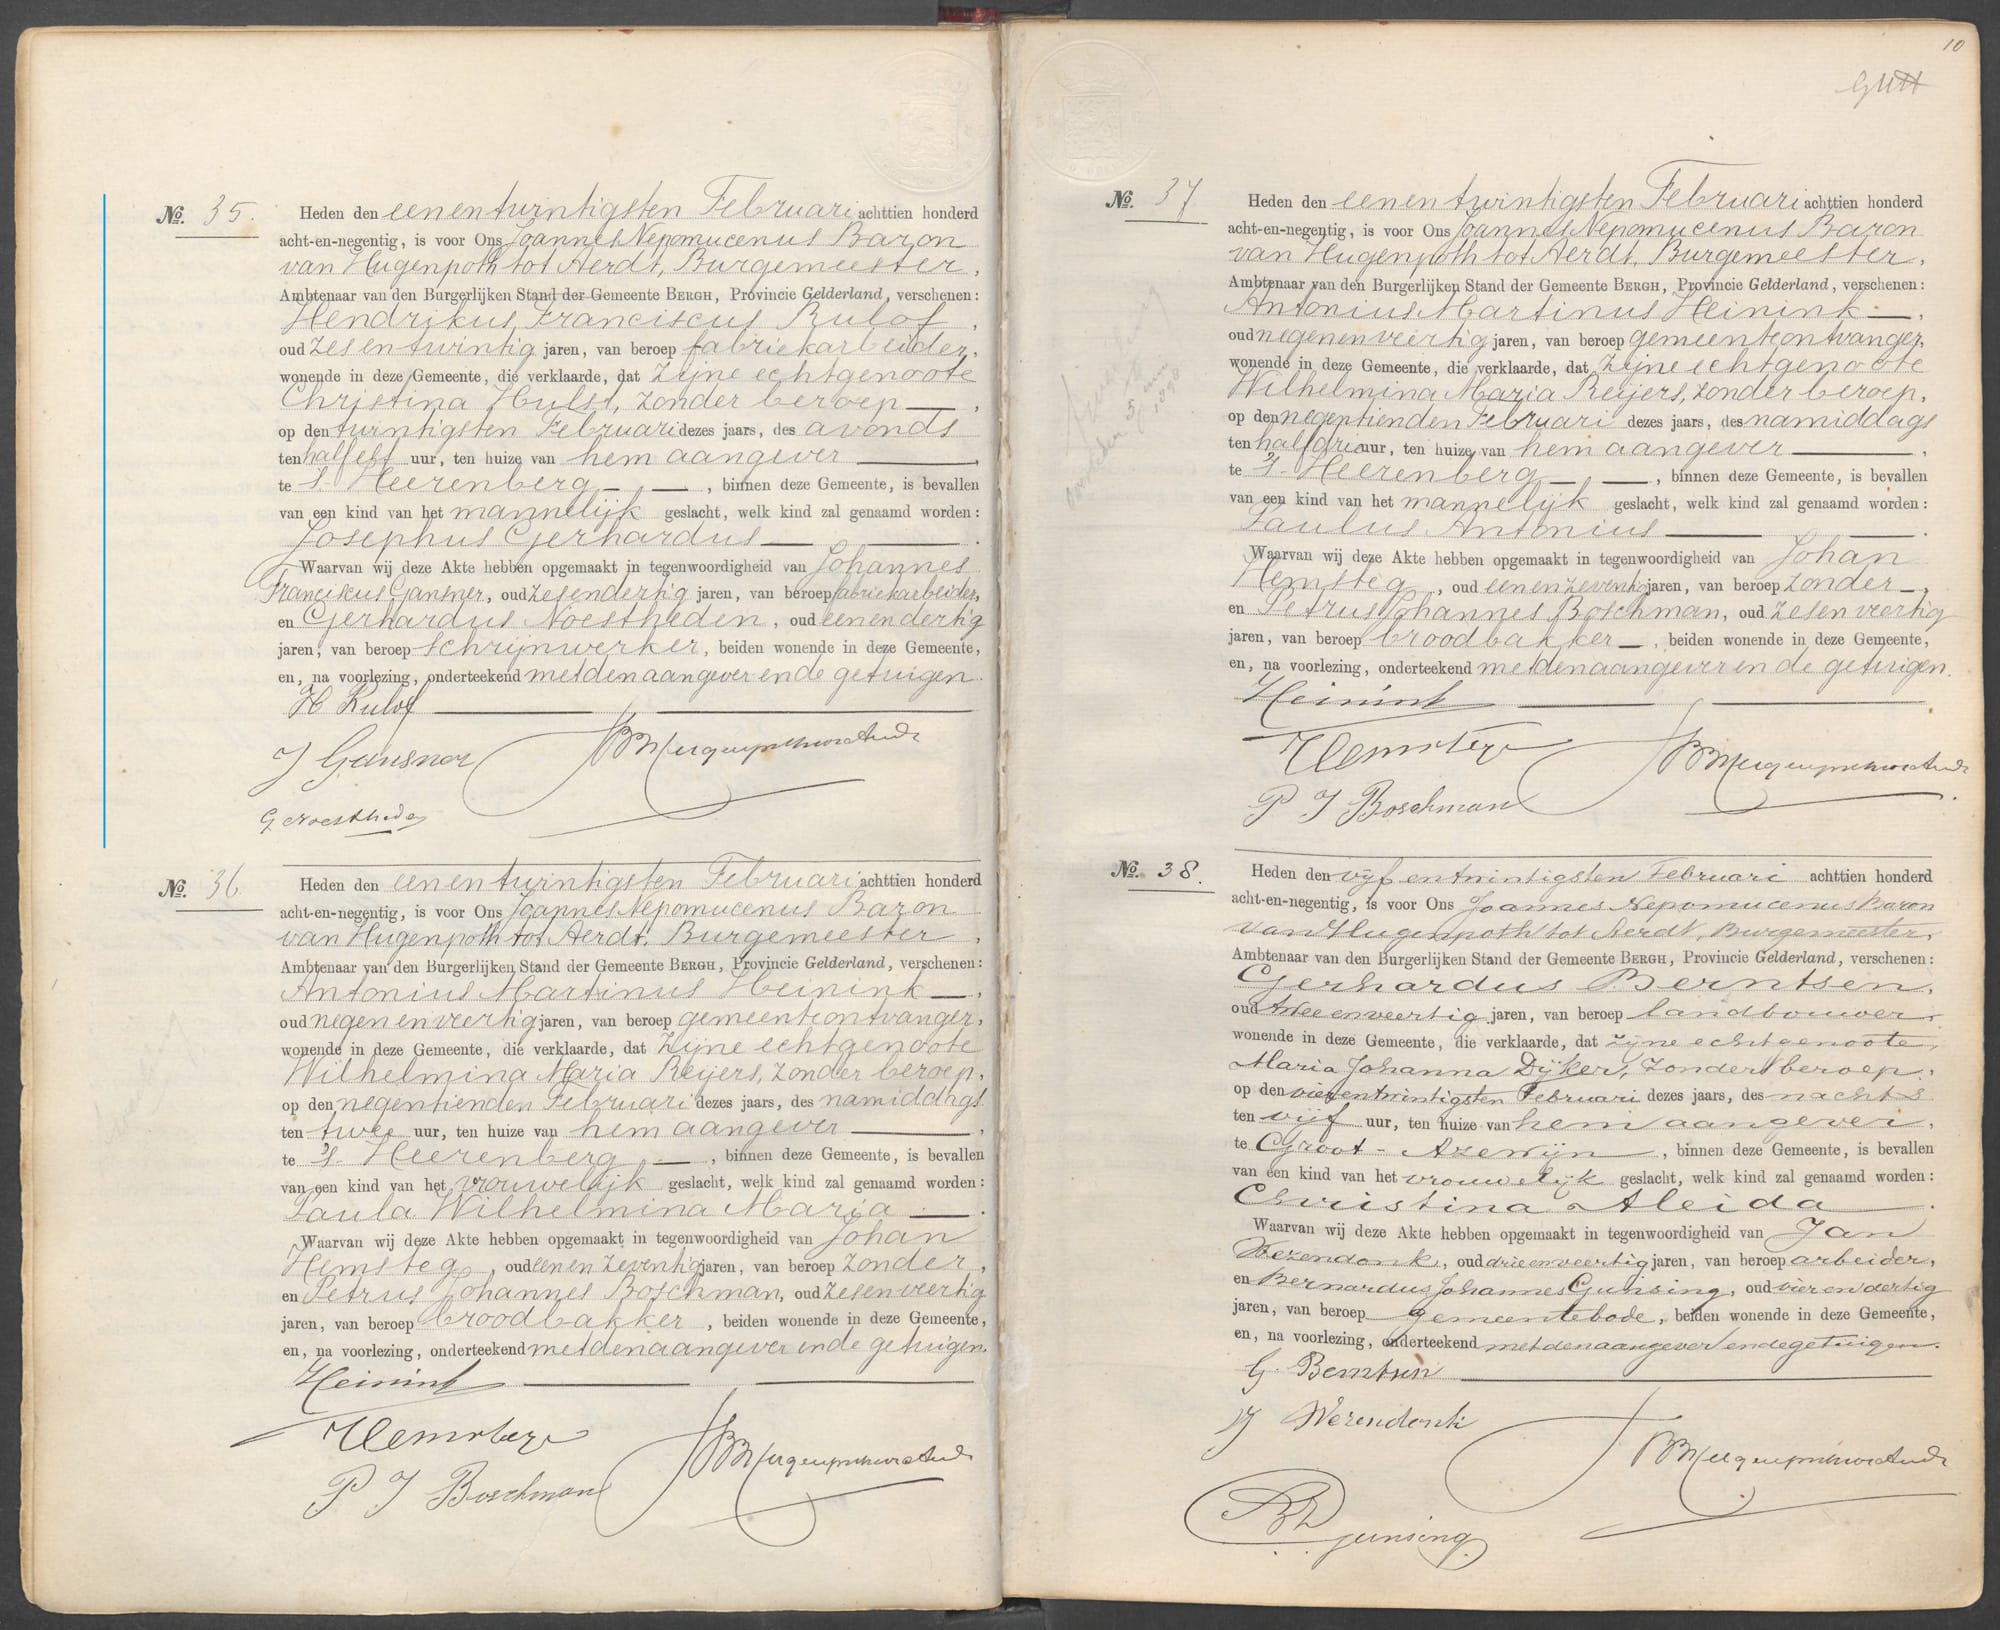 No. 35.
Heden den eenentwintigsten Februari achttien honderd
acht-en-negentig, is voor Ons Joannes Nepomucenus Baron
van Hugenpoth tot Aerdt, Burgemeester,
Ambtenaar van den Burgerlijken Stand der Gemeente BERGH, Provincie Gelderland, verschenen:
Hendrikus Franciscus Rulof,
oud zesentwintig jaren, van beroep fabriekarbeider,
wonende in deze Gemeente, die verklaarde, dat zijne echtgenoote
Christina Hulst, zonder beroep —,
op den twintigsten Februari dezes jaars, des avonds
ten half elf uur, ten huize van hem aangever —,
te 's Heerenberg — —, binnen deze Gemeente, is bevallen
van een kind van het mannelijk geslacht, welk kind zal genaamd worden:
Josephus Gerhardus — —.
Waarvan wij deze Akte hebben opgemaakt in tegenwoordigheid van Johannes
Franciskus Gansner, oud zesendertig jaren, van beroep fabriekarbeider,
en Gerhardus Noestheden, oud eenendertig
jaren, van beroep schrijnwerker, beiden wonende in deze Gemeente,
en, na voorlezing, onderteekend met den aangever en de getuigen.
H Rulof
J Gansner
G Noestheden
No. 36
Heden den eenentwintigsten Februari achttien honderd
acht-en-negentig, is voor Ons Joannes Nepomucenus Baron
van Hugenpoth tot Aerdt, Burgemeester,
Ambtenaar van den Burgerlijken Stand der Gemeente BERGH, Provincie Gelderland, verschenen:
Antonius Martinus Heinink —,
oud negenenveertig jaren, van beroep gemeenteontvanger,
wonende in deze Gemeente, die verklaarde, dat zijne echtgenoote
Wilhelmina Maria Reijers, zonder beroep,
op den negentienden Februari dezes jaars, des namiddags
ten twee uur, ten huize van hem aangever —,
te 's Heerenberg —, binnen deze Gemeente, is bevallen
van een kind van het vrouwelijk geslacht, welk kind zal genaamd worden:
Paula Wilhelmina Maria —.
Waarvan wij deze Akte hebben opgemaakt in tegenwoordigheid van Johan
Hemsteg, oud eenenzeventig jaren, van beroep zonder,
en Petrus Johannes Boschman, oud zesenveertig
jaren, van beroep broodbakker, beiden wonende in deze Gemeente,
en, na voorlezing, onderteekend met den aangever en de getuigen.
Heinink
Hemstege
P J Boschman
10
No. 37
Heden den eenentwintigsten Februari achttien honderd
acht-en-negentig, is voor Ons Joannes Nepomucenus Baron
van Hugenpoth tot Aerdt, Burgemeester,
Ambtenaar van den Burgerlijken Stand der Gemeente BERGH, Provincie Gelderland, verschenen:
Antonius Martinus Heinink —,
oud negenenveertig jaren, van beroep gemeenteontvanger,
wonende in deze Gemeente, die verklaarde, dat zijne echtgenoote
Wilhelmina Maria Reijers, zonder beroep,
op den negentienden Februari dezes jaars, des namiddags
ten half drie uur, ten huize van hem aangever —,
te 's Heerenberg — —, binnen deze Gemeente, is bevallen
van een kind van het mannelijk geslacht, welk kind zal genaamd worden:
Paulus Antonius — —.
Waarvan wij deze Akte hebben opgemaakt in tegenwoordigheid van Johan
Hemsteg, oud eenenzeventig jaren, van beroep zonder —,
en Petrus Johannes Boschman, oud zesenveertig
jaren, van beroep broodbakker —, beiden wonende in deze Gemeente,
en, na voorlezing, onderteekend met den aangever en de getuigen.
Heinink
Hemstege
P J Boschman
No. 38.
Heden den vijfentwintigsten Februari achttien honderd
acht-en-negentig, is voor Ons Joannes Nepomucenus Baron
van Hugenpoth tot Aerdt, Burgemeester,
Ambtenaar van den Burgerlijken Stand der Gemeente BERGH, Provincie Gelderland, verschenen:
Gerhardus Berntsen,
oud tweeenveertig jaren, van beroep landbouwer,
wonende in deze Gemeente, die verklaarde, dat zijne echtgenoote,
Maria Johanna Dijker, zonder beroep,
op den vierentwintigsten Februari dezes jaars, des nachts
ten vijf uur, ten huize van hem aangever,
te Groot-Azewijn, binnen deze Gemeente, is bevallen
van een kind van het vrouwelijk geslacht, welk kind zal genaamd worden:
Christina Aleida —.
Waarvan wij deze Akte hebben opgemaakt in tegenwoordigheid van Jan
Wezendonk, oud drieenveertig jaren, van beroep arbeider,
en Bernardus Johannes Gunsing, oud vierendertig
jaren, van beroep gemeentebode, beiden wonende in deze Gemeente,
en, na voorlezing, onderteekend met den aangever en de getuigen.
G. Berntsen
J Wezendonk
Gunsing